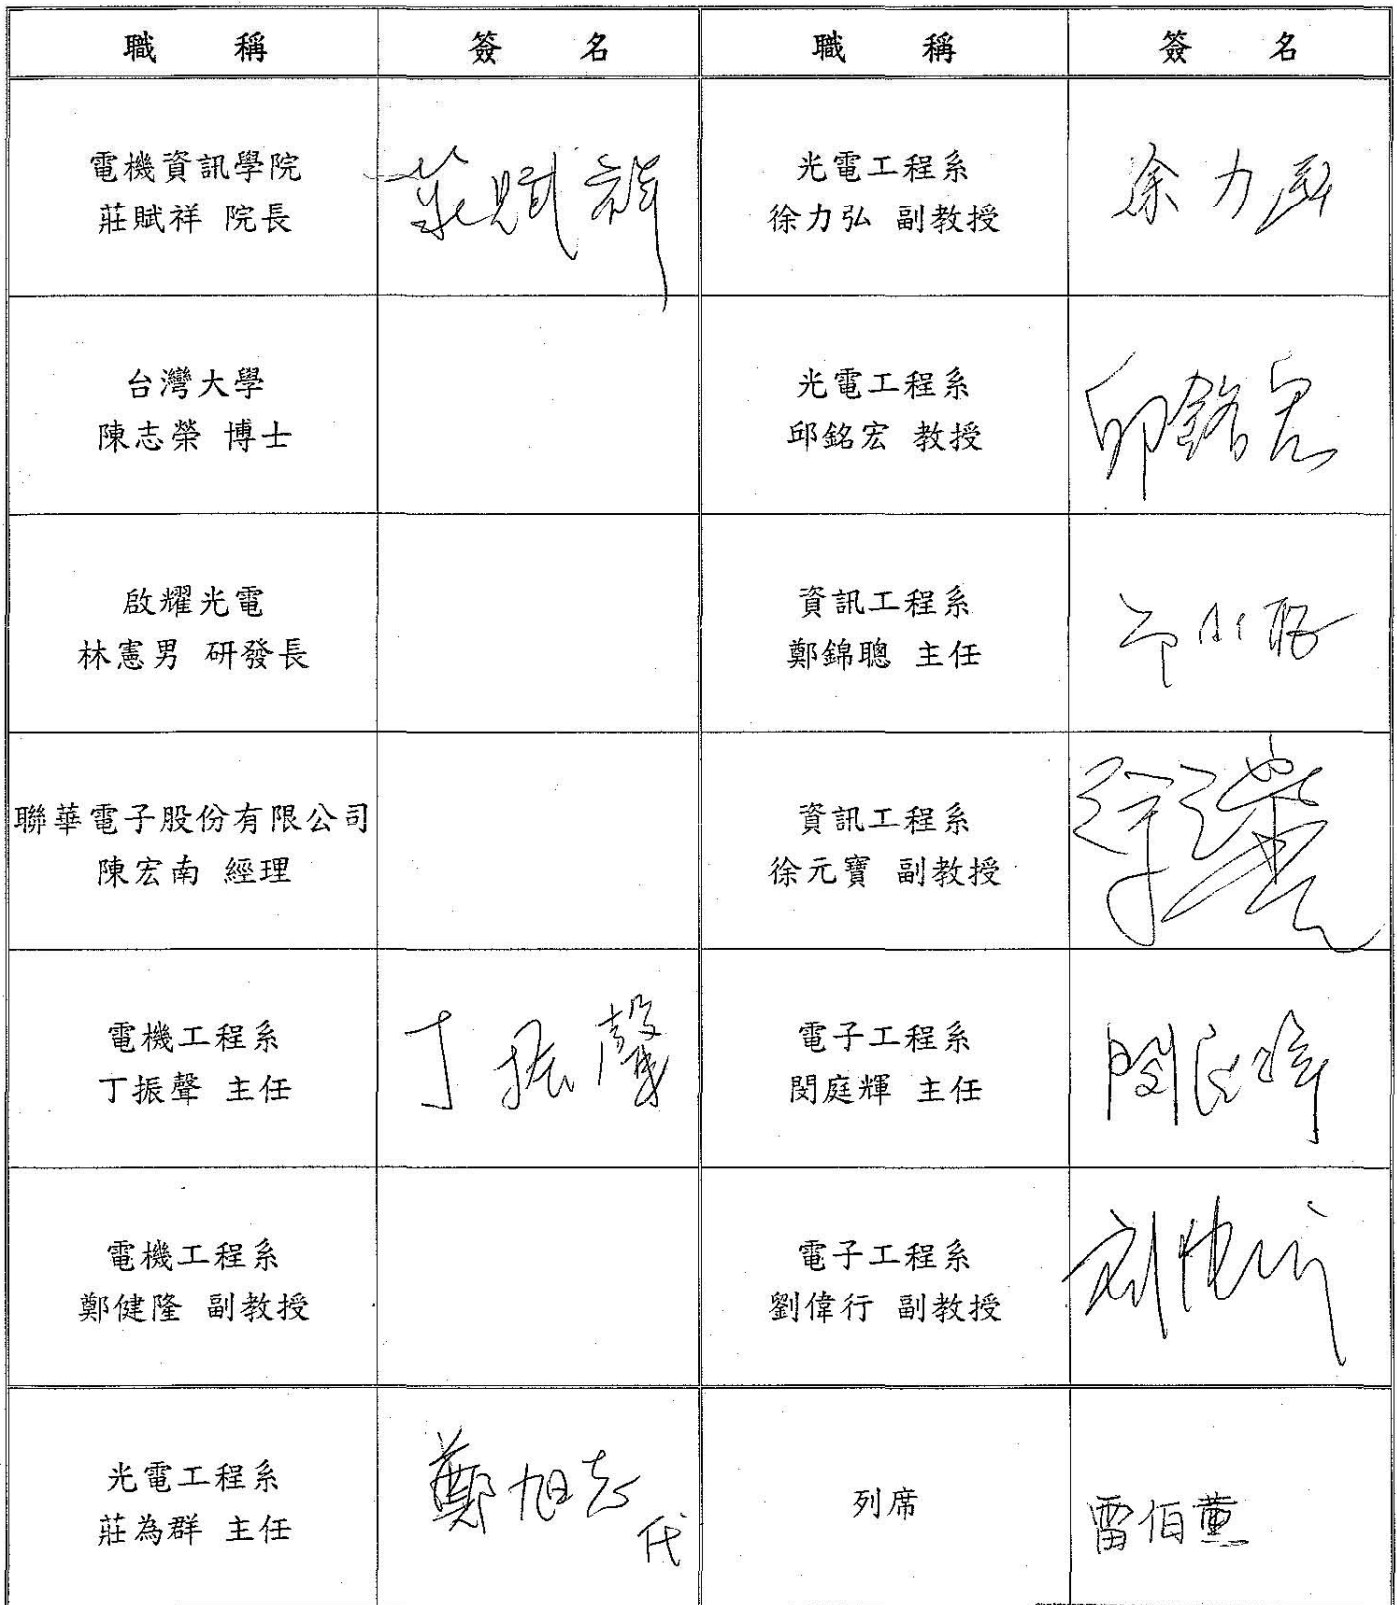 職稱 簽名 職稱 簽名
電機資訊學院
莊賦祥 院長
莊賦祥
光電工程系
徐力弘 副教授
徐力弘
台灣大學
陳志榮 博士
光電工程系
邱銘宏 教授
邱銘宏
啟耀光電
林憲男 研發長
資訊工程系
鄭錦聰 主任
聯華電子股份有限公司
陳宏南 經理
資訊工程系
徐元寶 副教授
電機工程系
丁振聲 主任
丁振聲
電子工程系
閔庭輝 主任
閔庭輝
電機工程系
鄭健隆 副教授
電子工程系
劉偉行 副教授
劉偉行
光電工程系
莊為群 主任
鄭旭志
代
列席
雷伯董